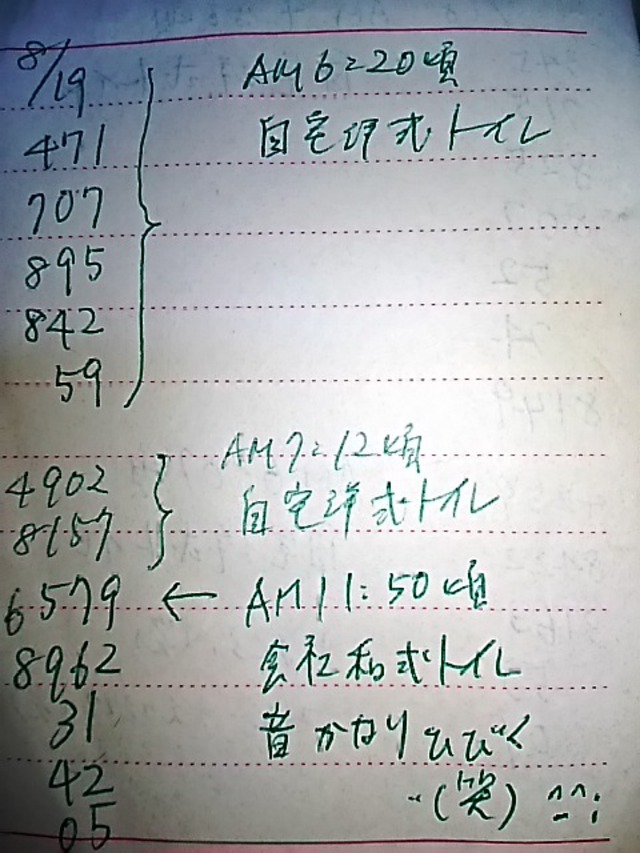 8/19 AM6:20頃
471 自宅洋式トイレ
707
895
842
59
AM7:12頃
4902 自宅洋式トイレ
8157
6579 ← AM11:50頃
8962 会社和式トイレ
31 音かなりひびく
42 (笑) ^^;
05